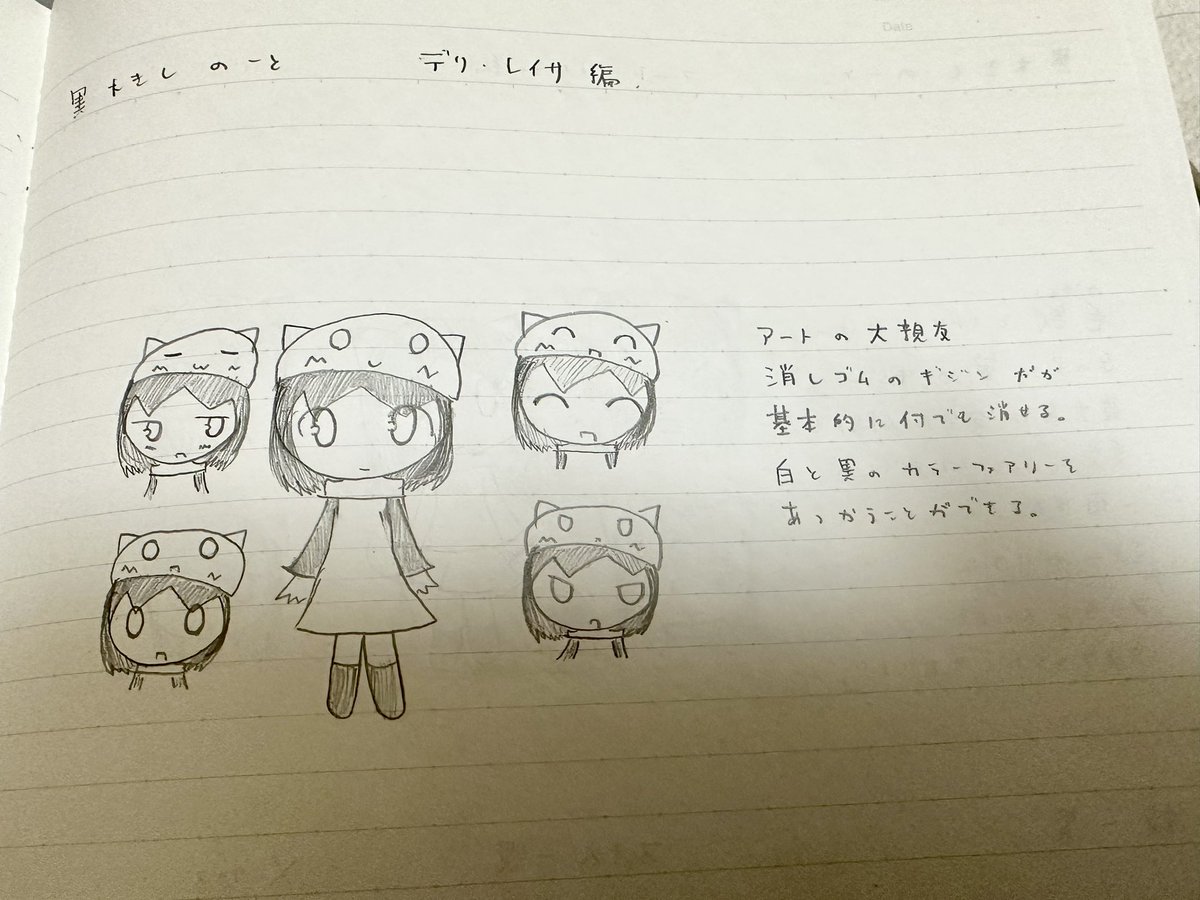 Date
黒大きしのーと デリ・レイサ編.
アートの大親友
消しゴムのギジンだが
基本的に付でも消せる。
白と黒のカラーファアリーを
あつかうことができる。